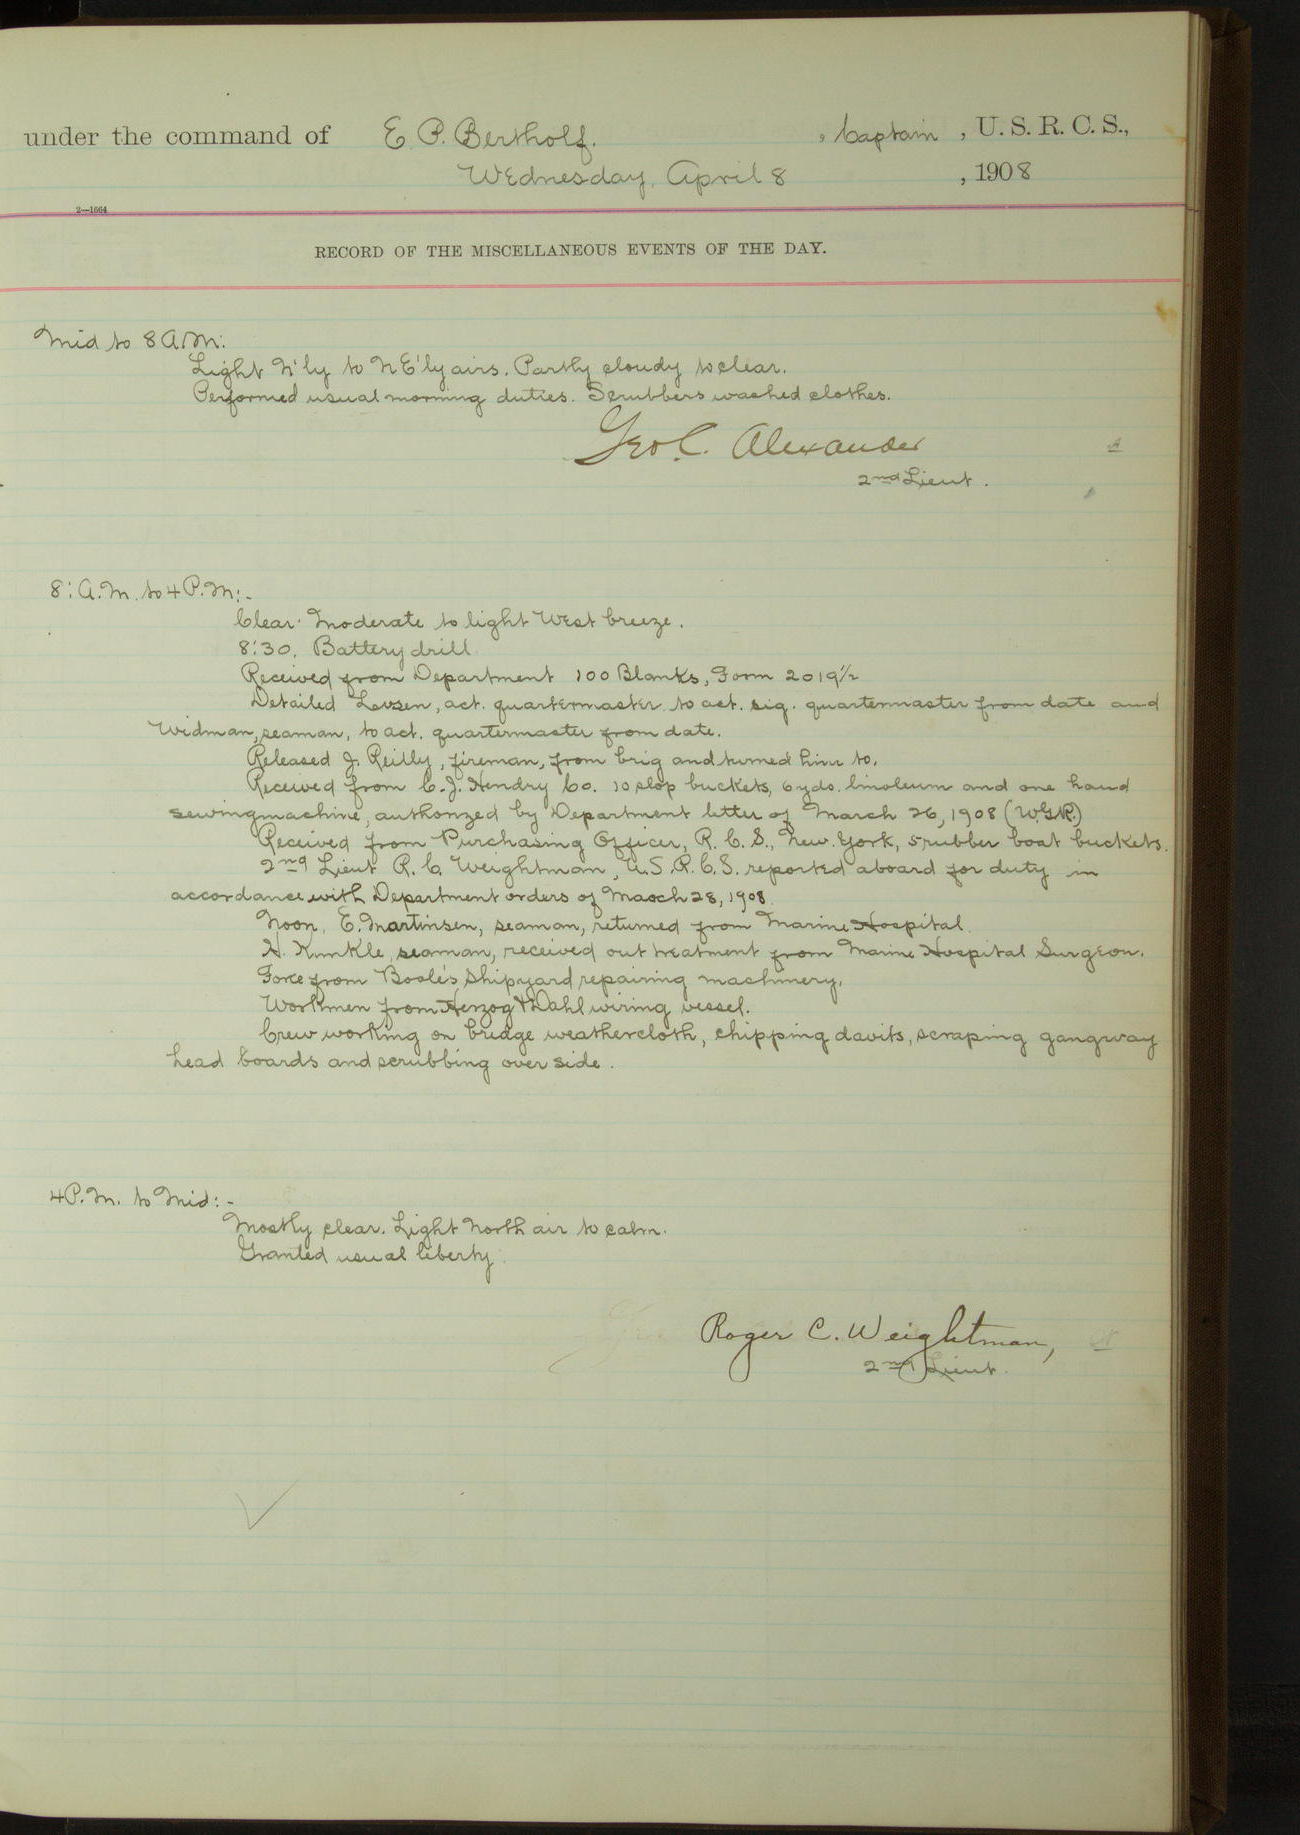 under the command of E. P. Bertholf. , Captain , U. S. R. C. S.,
Wednesday, April 8 , 1908
2—1664
RECORD OF THE MISCELLANEOUS EVENTS OF THE DAY.
Mid to 8 A.M:
Light N'ly to N E'ly airs. Partly cloudy to clear.
Performed usual morning duties. Scrubbers washed clothes.
Geo. C. Alexander
2nd Lieut.
8: A.M. to 4 P.M:-
Clear. Moderate to light West breeze.
8:30. Battery drill.
Received from Department 100 Blanks, Form 2019½
Detailed act. quartermaster to act. sig. quartermaster from date and
Widman, seaman, to act. quartermaster from date.
Released J. Reilly, fireman, from brig and turned him to.
Received from C. J. Hendry Co. 10 slop buckets, 6 yds. linoleum and one hand
sewing machine, authorized by Department letter of March 26, 1908 (W.G.R.)
Received from Purchasing Officer, R. C. S., New York, 5 rubber boat buckets.
2nd Lieut R. C. Weightman, U.S.R.C.S. reported aboard for duty in
accordance with Department orders of March 28, 1908.
Noon, E. Martinsen, seaman, returned from Marine Hospital.
H. Kunkle, seaman, received out treatment from Marine Hospital Surgeon.
Force from Boole's Shipyard repairing machinery.
Workmen from Herzog & Dahl wiring vessel.
Crew working on bridge weathercloth, chipping davits, scraping gangway
head boards and scrubbing over side.
4 P.M. to Mid:-
Mostly clear. Light North air to calm.
Granted usual liberty.
Roger C. Weightman,
2nd Lieut.